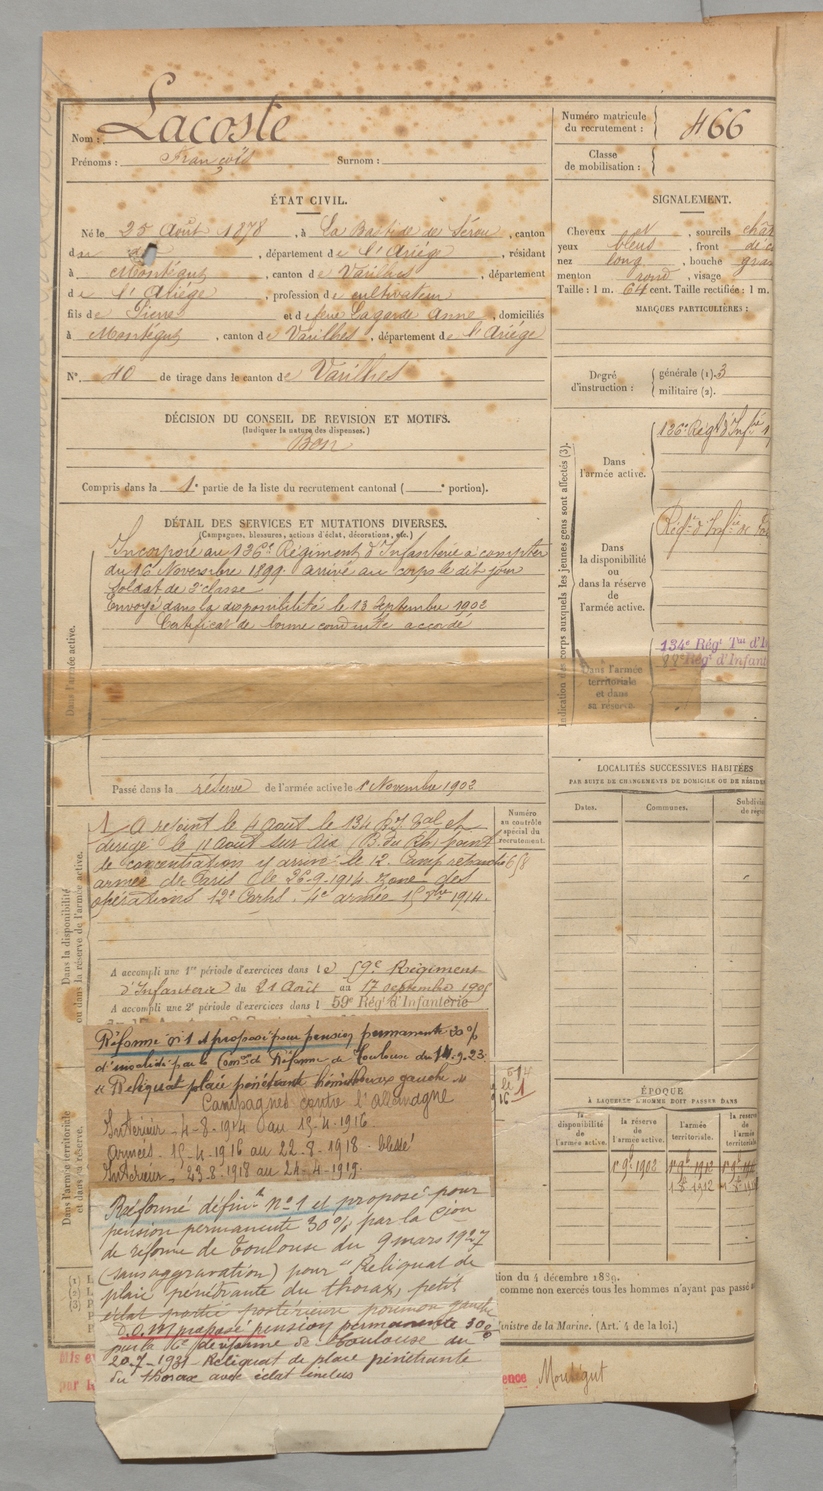 Nom : Lacoste
Prénoms : François Surnom :
Numéro matricule du recrutement : 466
Classe de mobilisation :
ÉTAT CIVIL.
Né le 25 Août 1878, à La Bastide de Sérou, canton
du dit, département de l'Ariège, résidant
à Montégut, canton de Varilhes, département
de l'Ariège, profession de cultivateur
fils de Pierre et de feue Lagarde Anne, domiciliés
à Montégut, canton de Varilhes, département de l'Ariège
N° 40 de tirage dans le canton de Varilhes
SIGNALEMENT.
Cheveux et, sourcils chât
yeux bleus, front
nez long, bouche gran
menton rond, visage
Taille : 1 m. 64 cent. Taille rectifiée : 1 m.
MARQUES PARTICULIÈRES :
Degré d'instruction : générale (1). 3
militaire (2).
DÉCISION DU CONSEIL DE REVISION ET MOTIFS.
(Indiquer la nature des dispenses.)
Bon
Compris dans la 1e partie de la liste du recrutement cantonal ( e portion).
DÉTAIL DES SERVICES ET MUTATIONS DIVERSES.
(Campagnes, blessures, actions d'éclat, décorations, etc.)
Dans l'armée active.
Incorporé au 136e Régiment d'Infanterie à compter
du 16 Novembre 1899. arrivé au corps le dit jour
soldat de 2e classe
Envoyé dans la disponibilité le 13 septembre 1902
Certificat de bonne conduite accordé
Passé dans la réserve de l'armée active le 1 Novembre 1902
Indication des corps auxquels les jeunes gens sont affectés (3).
Dans l'armée active.
136e Régt d'Inf
Dans la disponibilité ou dans la réserve de l'armée active.
Régt d'Infie de
Dans l'armée territoriale et dans sa réserve.
134e Régt Tal d'I
Régt d'Infant
LOCALITÉS SUCCESSIVES HABITÉES
PAR SUITE DE CHANGEMENTS DE DOMICILE OU DE RÉSIDE
Dates. Communes. Subdivis de régi
Dans la disponibilité ou dans la réserve de l'armée active.
Numéro au contrôle spécial du recrutement.
A rejoint le 4 Août le 134 Rgt Tal et
dirigé le 11 Août sur Aix B. du Rh. point
de concentration y arrivé le 12. Camp retranché
armée de Paris le 26-9-1914 zone des
opérations 12e Corps. 4e armée 15 1914.
658
A accompli une 1re période d'exercices dans le 59e Régiment
d'Infanterie du 21 Août au 17 septembre 1905
A accompli une 2e période d'exercices dans l 59e Régt d'Infanterie
Réformé n° 1 et proposé pour pension permanente 30%
d'invalidité par la Comon de Réforme de Toulouse du 14-9-23
"Reliquat plaie pénétrante hémithorax gauche"
Campagnes contre l'Allemagne
Intérieur - 4-8-1914 au 15-4-1916
Armées - 15-4-1916 au 22-8-1918 - blessé
Intérieur - 23-8-1918 au 24-4-1919.
Dans l'armée territoriale et dans sa réserve.
Réformé définitt n° 1 et proposé pour
pension permanente 30% par la Cion
de réforme de Toulouse du 9 mars 1927
(sans aggravation) pour "Reliquat de
plaie pénétrante du thorax, petit
éclat partie postérieure poumon gauche
proposé pension permanente 30%
par la de réforme de Toulouse du
20-7-1931 Reliquat de plaie pénétrante
du thorax avec éclat inclus
ÉPOQUE
À LAQUELLE L'HOMME DOIT PASSER DANS
la disponibilité de l'armée active. la réserve de l'armée active. l'armée territoriale. la réserve de l'armée territoriale
1r 9bre 1902 1r 9bre 1912
1912
tion du 4 décembre 1889.
comme non exercés tous les hommes n'ayant pas passé
nistre de la Marine. (Art. 4 de la loi.)
ence Montégut